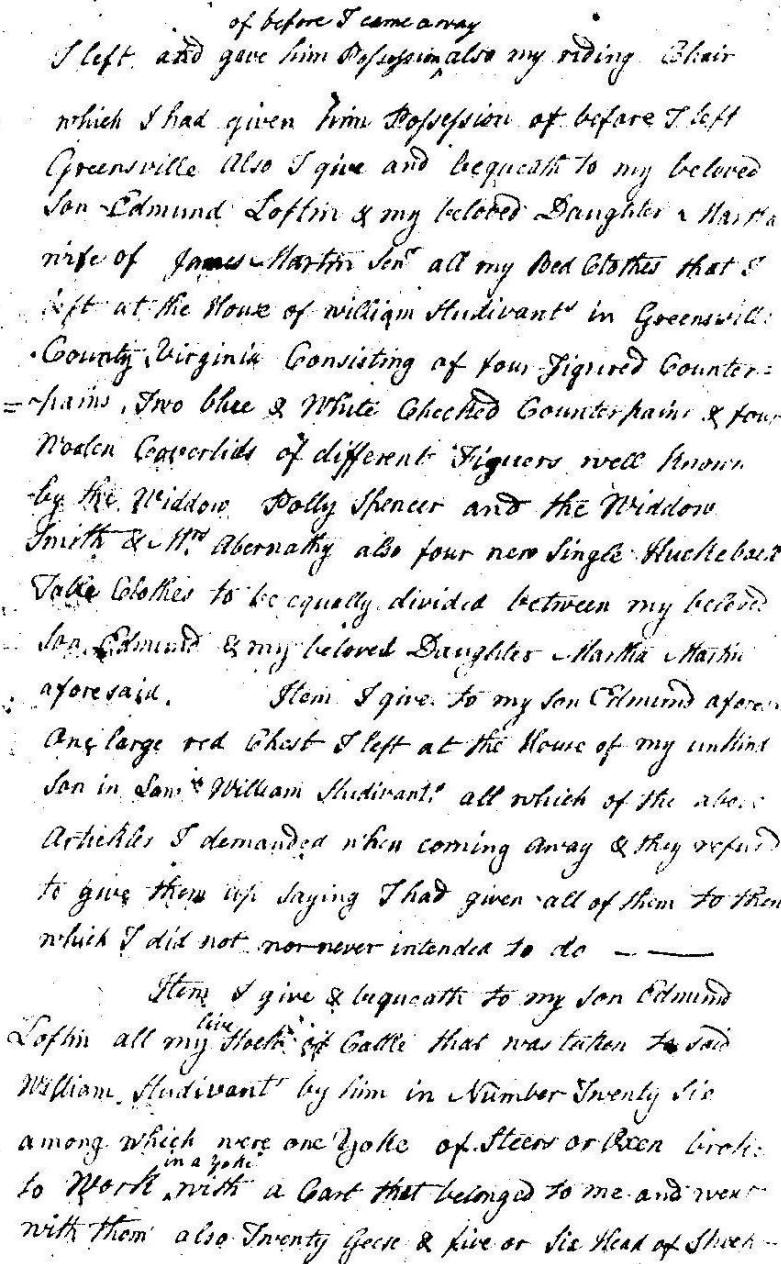 of before I came away
I left and gave him Possession also my riding Chair
which I had given him Possession of before I left
Greensville Also I give and bequeath to my beloved
Son Edmund Loftin & my beloved Daughter Martha
wife of James Martin Senr all my Bed Clothes that I
left at the House of william Studivants in Greensville
County Virginia Consisting of four Figured Counter=
=pains, Two blue & White Checked Counterpains & four
Woolen Coverlids of different Figuers well known
by the Widdow Polly Spencer and the Widdow
Smith & Mrs Abernathy also four new Single Huckeback
Table Clothes to be equally divided between my beloved
Son Edmund & my beloved Daughter Martha Martin
aforesaid. Item I give to my Son Edmund afore
One large red Chest I left at the House of my unkind
Son in Law William Studivants all which of the above
Artickles I demanded when coming away & they refused
to give them up saying I had given all of them to them
which I did not nor never intended to do — —
Item I give & bequeath to my Son Edmund
live
Loftin all my Stock of Cattle that was taken to said
William Studivant by him in Number Twenty Six
among which were one Yoke of Steers or Oxen broke
in a Yoke
to Work with a Cart that belonged to me and went
with them also Twenty Geese & five or Six Head of Sheep